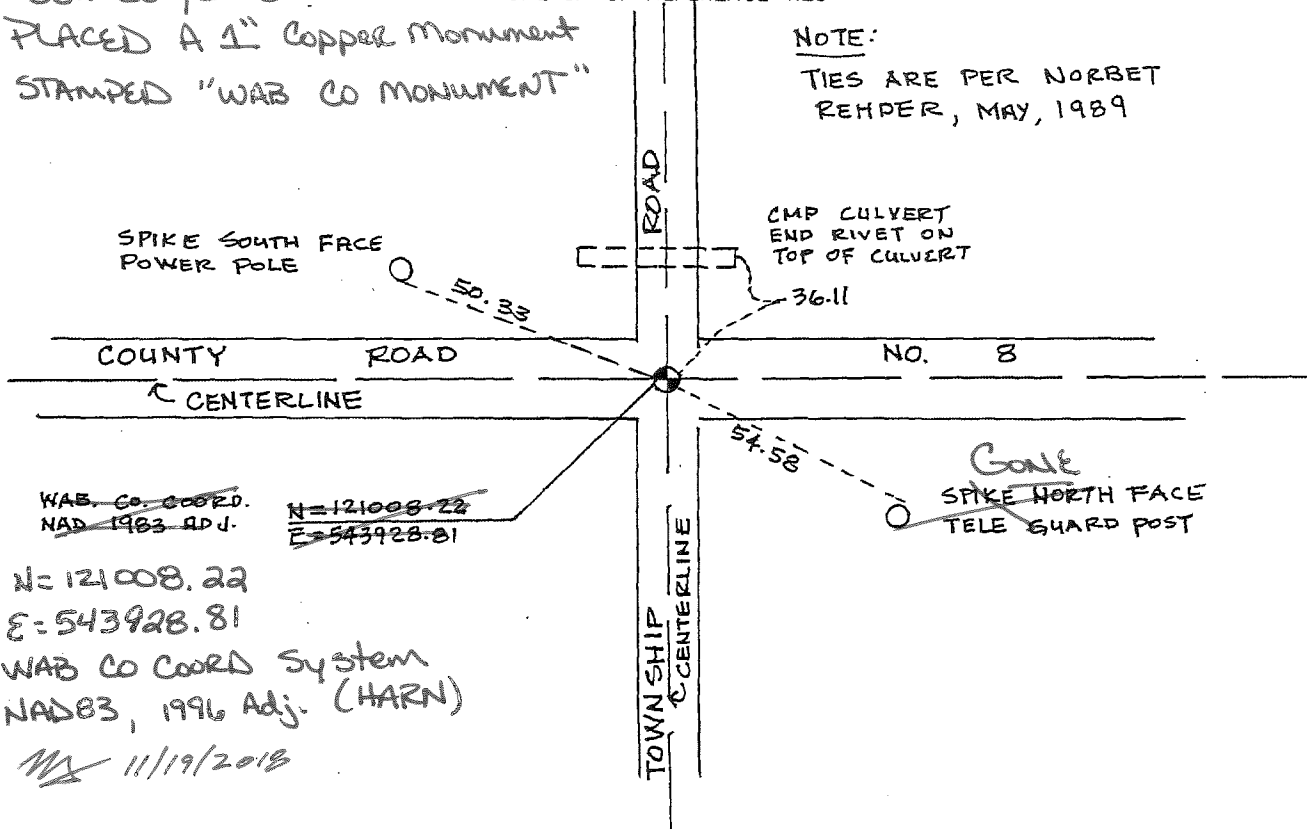 PLACED A 1" Copper Monument
STAMPED "WAB CO MONUMENT"
NOTE:
TIES ARE PER NORBET
REHDER, MAY, 1989
ROAD
CMP CULVERT
END RIVET ON
TOP OF CULVERT
36.11
SPIKE SOUTH FACE
POWER POLE
50.33
COUNTY ROAD NO. 8
CENTERLINE
54.58
GONE
SPIKE NORTH FACE
TELE GUARD POST
WAB. CO. COORD.
NAD 1983 ADJ.
N=121008.22
E=543928.81
N=121008.22
E=543928.81
WAB CO COORD System
NAD83, 1996 Adj. (HARN)
11/19/2018
TOWNSHIP
CENTERLINE